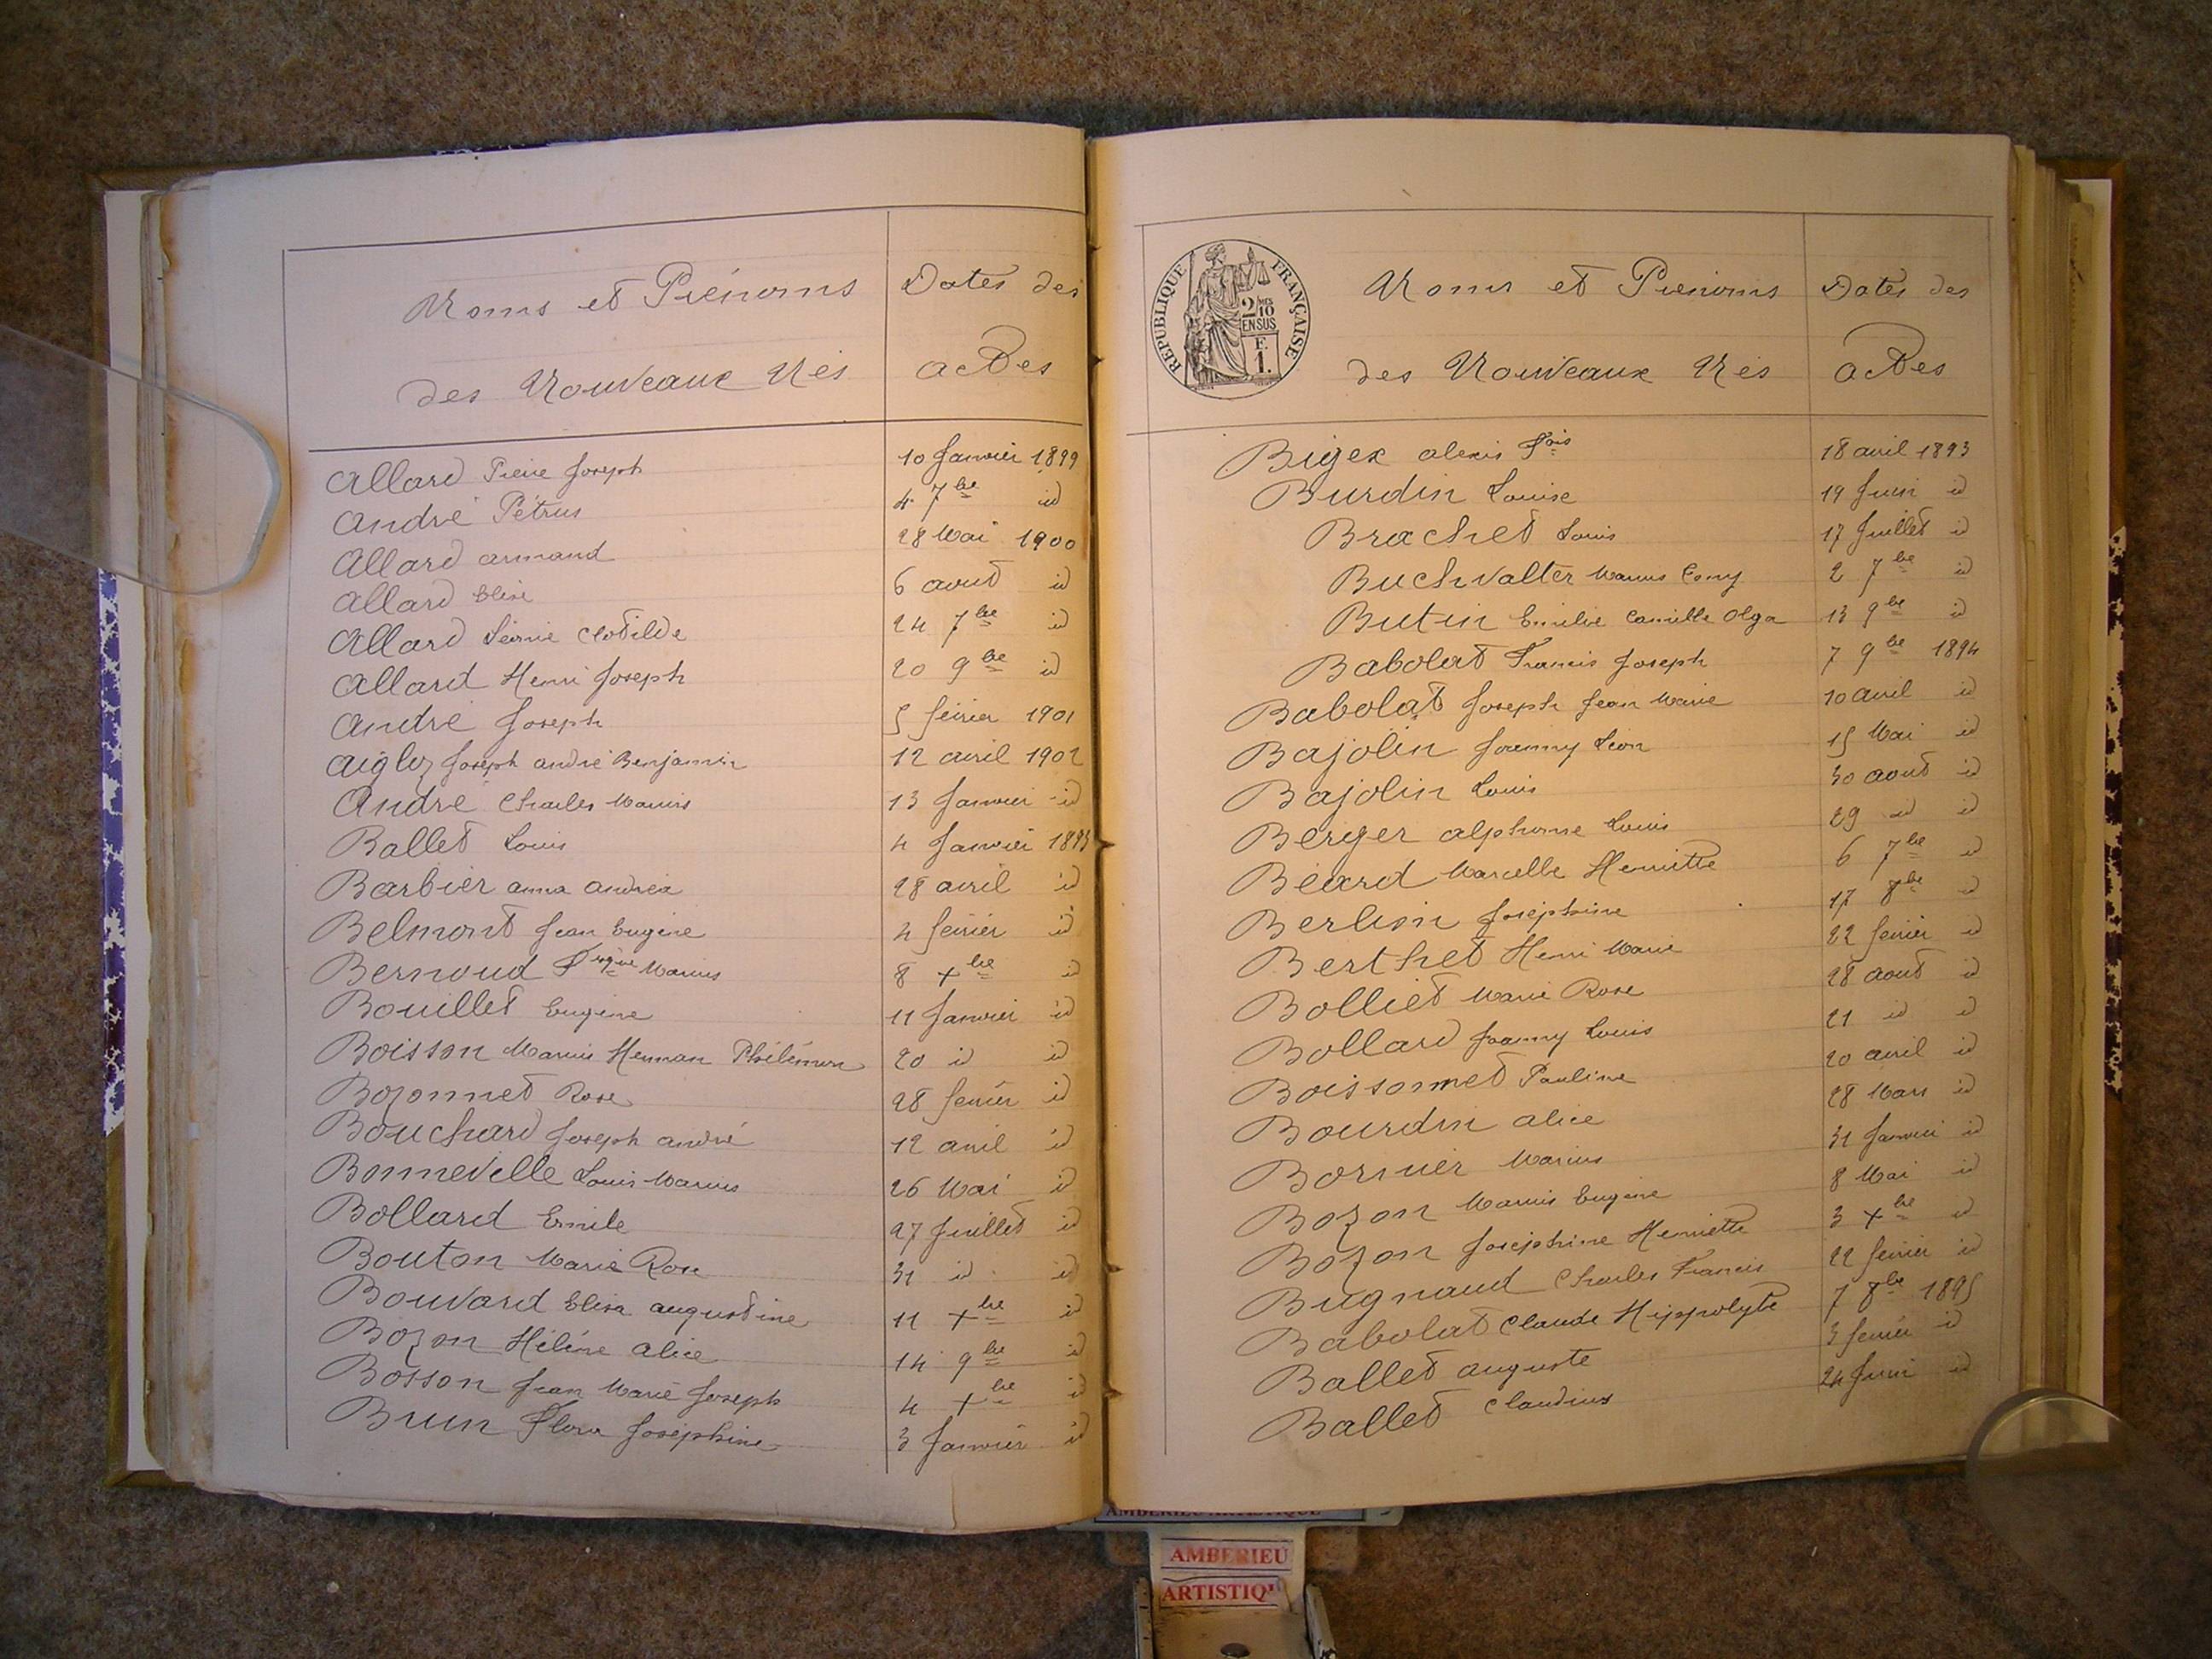 Noms et Prénoms Dates des
des Nouveaux Nés actes
Allard Pierre Joseph 10 Janvier 1899
André Pétrus 4 7bre id
Allard armand 28 Mai 1900
Allard Elise 6 aout id
Allard Léonie Clotilde 24 7bre id
Allard Henri Joseph 20 9bre id
André Joseph 5 février 1901
Aigloz Joseph andré Benjamin 12 avril 1902
André Charles Marius 13 Janvier id
Ballet Louis 4 Janvier 1893
Barbier anna andréa 28 avril id
Belmont Jean Eugène 4 février id
Bernoud Marius 8 Xbre id
Bouillet Eugène 11 Janvier id
Boisson Marius Herman Philémon 20 id id
Bozonnet Rose 28 février id
Bouchard Joseph andré 12 avril id
Bonneville Louis Marius 26 Mai id
Bollard Emile 27 Juillet id
Bouton Marie Rose 31 id id
Bouvard Elisa augustine 11 Xbre id
Bozon Hélène alice 14 9bre id
Bosson Jean Marie Joseph 4 Xbre id
Brun Flora Joséphine 3 Janvier id
REPUBLIQUE FRANÇAISE
2/10 MES
EN SUS
F.
1.
Noms et Prénoms Dates des
des Nouveaux Nés actes
Bigex alexis Fois 18 avril 1893
Burdin Louise 19 Juin id
Brachet Louis 17 Juillet id
Buchvalter Marius 2 7bre id
Butin Emilie Camille Olga 13 9bre id
Babolat Francis Joseph 7 9bre 1894
Babolat Joseph Jean Marie 10 avril id
Bajolin Joanny Léon 15 Mai id
Bajolin Louis 30 aout id
Berger alphonse Louis 29 id id
Béard Marcelle Henriette 6 7bre id
Berlion Joséphine 17 8bre id
Berthet Henri Marie 22 février id
Bolliet Marie Rose 28 aout id
Bollard Joanny Louis 21 id id
Boissonnet Pauline 20 avril id
Bourdin alice 28 Mars id
Bornier Marius 31 Janvier id
Bozon Marius Eugène 8 Mai id
Bozon Joséphine Henriette 3 Xbre id
Bugnaud Charles Francis 22 février id
Babolat Claude Hippolyte 7 8bre 1895
Ballet auguste 3 février id
Ballet Claudius 24 Juin id
AMBERIEU ARTISTIQUE
AMBERIEU
ARTISTIQU